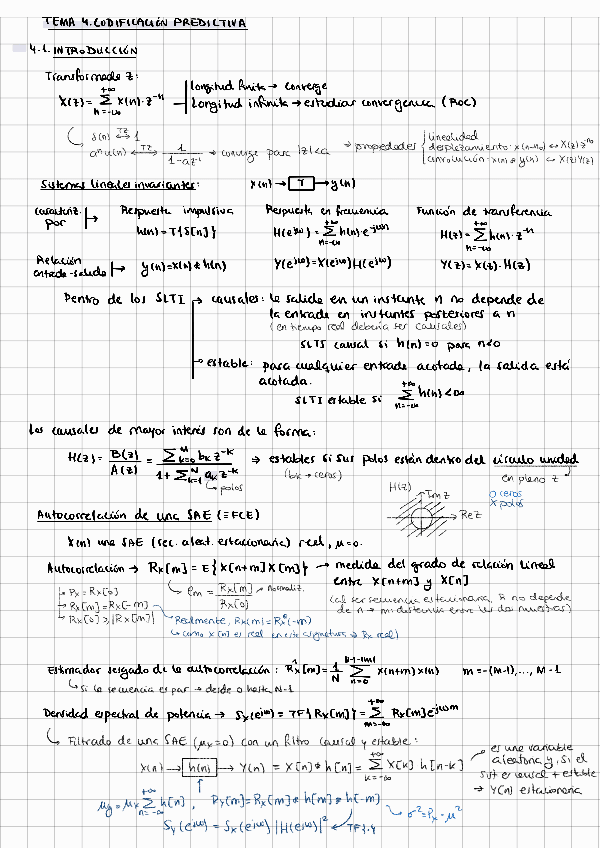 TEMA 4. CODIFICACIÓN PREDICTIVA
4.1. INTRODUCCIÓN
Transformada z:
X(z) = Σ_{n=-∞}^{+∞} x(n)·z^{-n}
longitud finita → converge
longitud infinita → estudiar convergencia (ROC)
δ(n) ⟷^{TZ} 1
a^n u(n) ⟷^{TZ} 1/(1-az^{-1}) → converge para |z|<a
→ propiedades
linealidad
desplazamiento: x(n-n0) ↔ X(z)z^{-n0}
convolución: x(n)*y(n) ↔ X(z)Y(z)
Sistemas lineales invariantes: x(n) → T → y(n)
caracteriz. por
Respuesta impulsiva
h(n)=T{δ[n]}
Respuesta en frecuencia
H(e^{jω}) = Σ_{n=-∞}^{+∞} h(n)·e^{-jωn}
Función de transferencia
H(z) = Σ_{n=-∞}^{+∞} h(n)·z^{-n}
Relación entrada-salida
y(n)=x(n)*h(n)
Y(e^{jω})=X(e^{jω})H(e^{jω})
Y(z)=X(z)·H(z)
Dentro de los SLTI → causales: la salida en un instante n no depende de
la entrada en instantes posteriores a n
(en tiempo real debería ser causales)
SLTI causal si h(n)=0 para n<0
→ estable: para cualquier entrada acotada, la salida está
acotada.
SLTI estable si Σ_{n=-∞}^{+∞} h(n)<∞
Los causales de mayor interés son de la forma:
H(z) = B(z)/A(z) = Σ_{k=0}^{M} b_k z^{-k} / (1+Σ_{k=1}^{N} a_k z^{-k}) ⇒ estables si sus polos están dentro del círculo unidad
(bk → ceros)
↳ polos
en plano z
H(z)
Im z
Re z
O ceros
X polos
Autocorrelación de una SAE (≡FCE)
X(n) una SAE (sec. aleat. estacionaria) real, μ=0.
Autocorrelación → Rx[m] = E{X[n+m]X[m]} → medida del grado de relación lineal
entre X[n+m] y X[n]
Px = Rx[0]
Rx[m] = Rx[-m]
Rx[0] ≥ |Rx[m]|
ρm = Rx[m]/Rx[0] → normaliz.
(al ser secuencia estacionaria, R no depende
de n → m distancia entre las dos muestras)
Realmente, Rx(m) = Rx*(-m)
↳ como X[n] es real en esta asignatura → Rx real)
Estimador sesgado de la autocorrelación: R̂x[m] = 1/N Σ_{n=0}^{N-1-|m|} x(n+m)x(n) m=-(M-1),..., M-1
↳ si la secuencia es par → desde 0 hasta N-1
Densidad espectral de potencia → Sx(e^{jω}) = TF{Rx[m]} = Σ_{m=-∞}^{+∞} Rx[m]e^{jωm}
↳ Filtrado de una SAE (μx=0) con un filtro causal y estable:
X(n) → h(n) → Y(n) = X[n]*h[n] = Σ_{k=-∞}^{+∞} X[k] h[n-k]
es una variable
aleatoria y, si el
sist es causal + estable
→ Y(n) estacionaria
μy = μx Σ_{n=-∞}^{+∞} h[n], Ry[m]=Rx[m]*h[m]*h[-m]
σ²=Px-μ²
Sy(e^{jω}) = Sx(e^{jω})|H(e^{jω})|² ↙ TF{·}